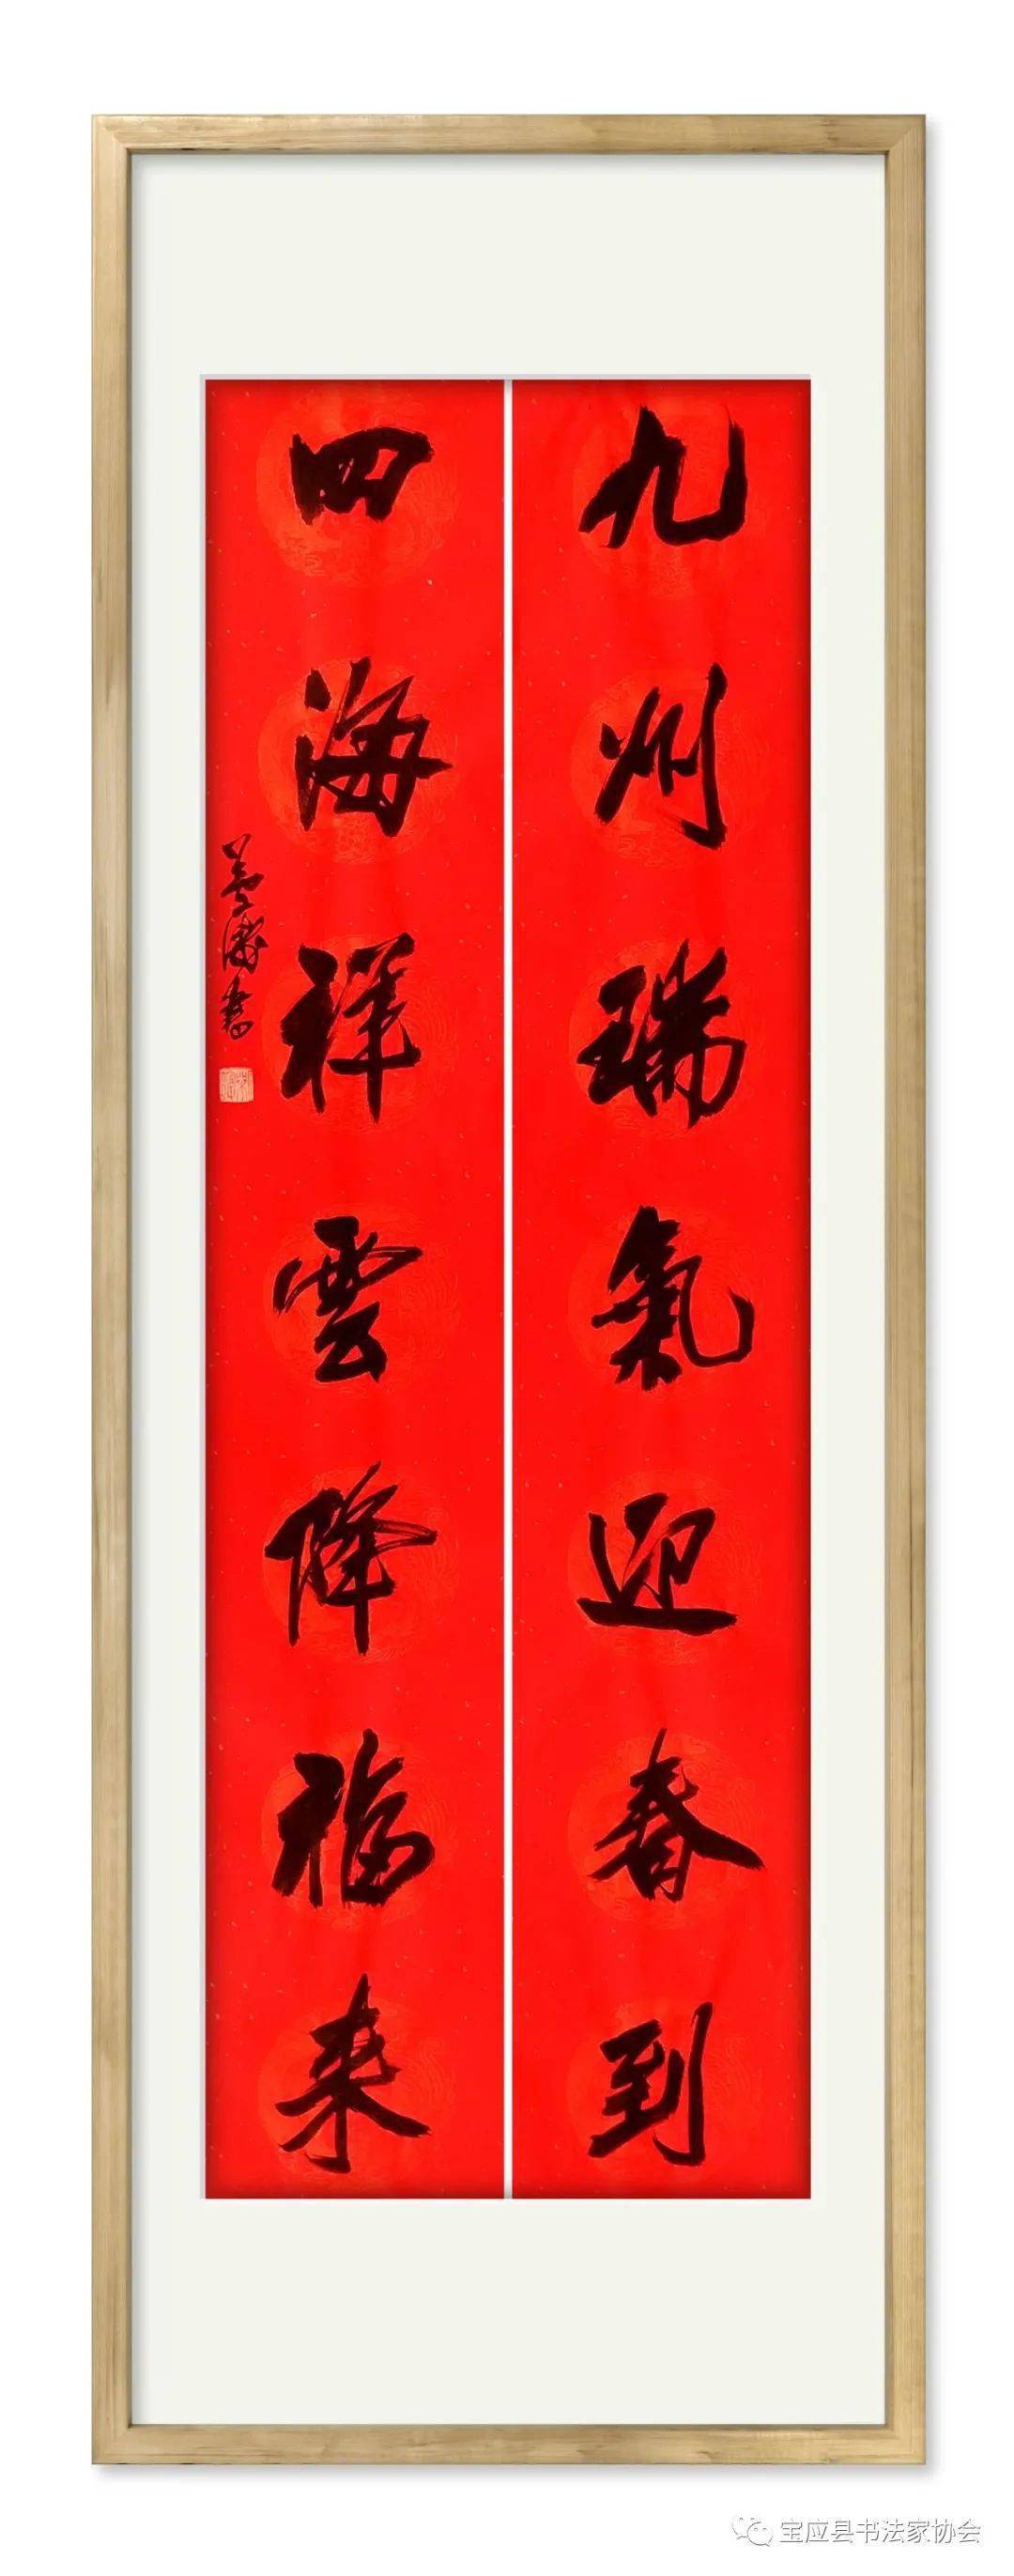 九州瑞氣迎春到
四海祥雲降福来
书
宝应县书法家协会